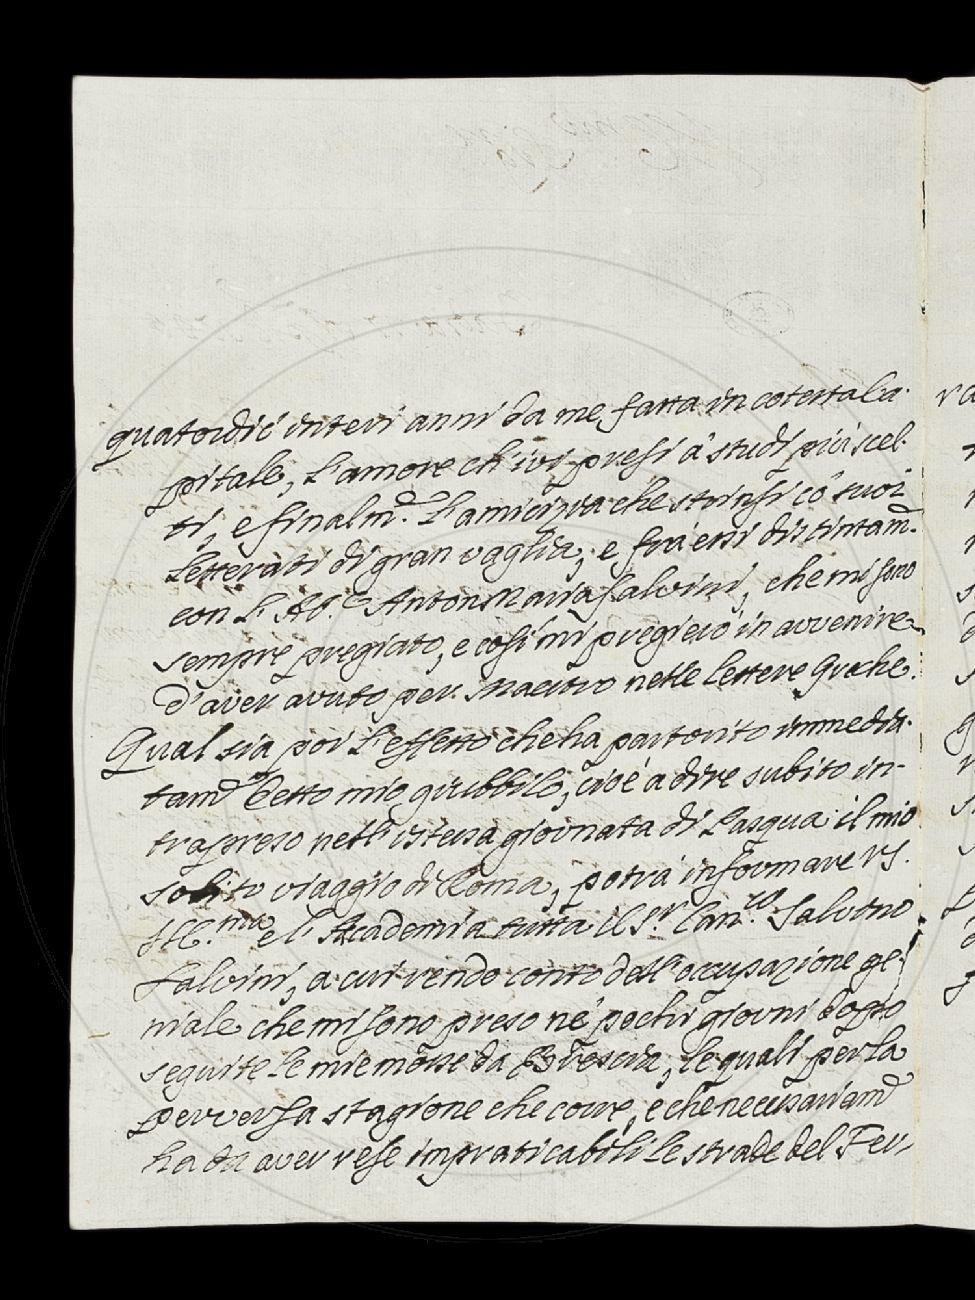 quatordici interi anni da me fatta in cotesta Ca-
pitale, l'amore ch'ivi presi a' studj più scel-
ti, e finalm.e l'amicizia che strinsi cô suoi
Letterati di gran vaglia, e frà essi distintam.e
con l'Ab.e Anton Maria Salvini, che mi sono
sempre pregiato, e così mi pregierò in avvenire
d'aver avuto per Maestro nelle lettere Greche.
Qual sia poi l'effetto che ha partorito immedia-
tam.e detto mio giubbilo, cioè a dire subito in-
trapreso nell'istessa giornata di Pasqua il mio
solito viaggio di Roma, potrà informare VS.
Ill.ma e l'Accademia tutta il S.r Can.co Salvino
Salvini, a cui rendo conto dell'occupazione ge-
niale che mi sono preso nè pochi giorni doppo
seguite le mie mosse da Brescia, le quali per la
perversa stagione che corre, e che necessariam.e
ha da aver rese impraticabili le strade del Fer-